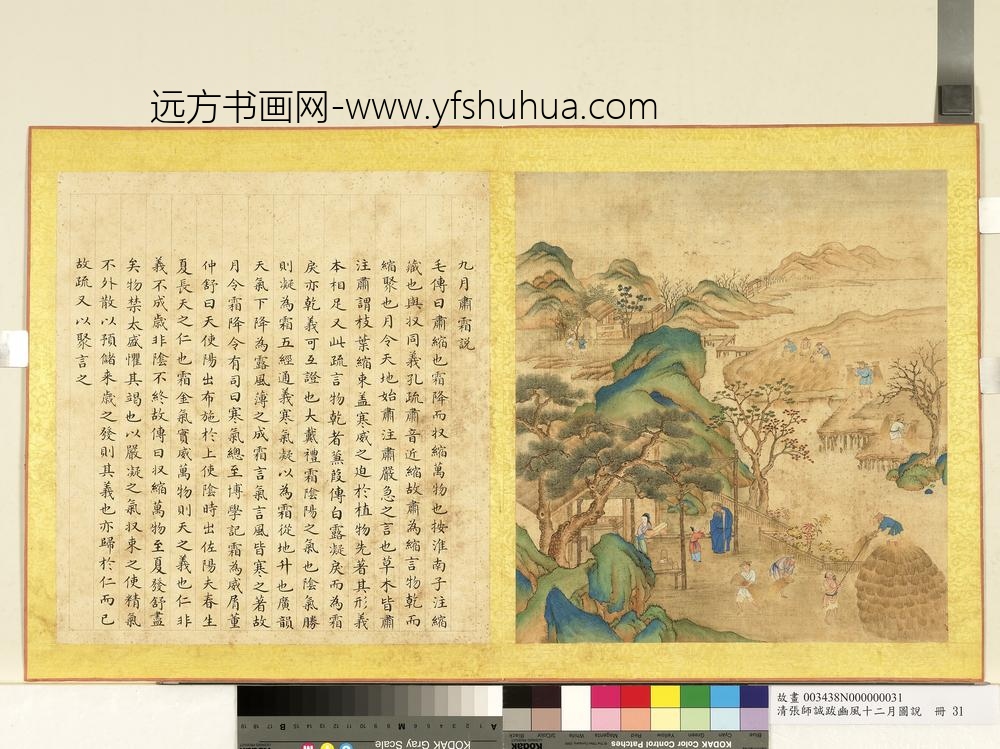 远方书画网-www.yfshuhua.com
九月肅霜説
毛傳曰肅縮也霜降而収縮萬物也按淮南子注縮
蔵也與収同義孔疏肅音近縮故肅為縮言物乾而
縮聚也月令天地始肅注肅嚴急之言也草木皆肅
注肅謂枝葉縮束盖寒威之迫於植物先著其形義
本相足又此疏言物乾者蒹葭傳白露凝戾而為霜
戾亦乾義可互證也大戴禮霜陰陽之氣也陰氣勝
則凝為霜五經通義寒氣凝以為霜從地升也廣韻
天氣下降為露風薄之成霜言氣言風皆寒之著故
月令霜降令有司曰寒氣總至博學記霜為威屑董
仲舒曰天使陽出布施於上使陰時出佐陽夫春生
夏長天之仁也霜金氣實威萬物則天之義也仁非
義不成歳非陰不終故傳曰収縮萬物至夏發舒盡
矣物禁太盛懼其竭也以嚴凝之氣収束之使精氣
不外散以預儲来歳之發則其義也亦歸於仁而已
故疏又以聚言之
KODAK Gray Scale
KODAK Color Control Patches
故畫 003438N000000031
清張師誠跋豳風十二月圖説 冊 31